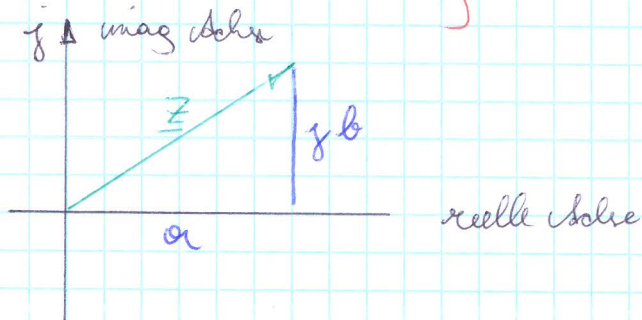 j imag Achse
Z
jb
a
reelle Achse